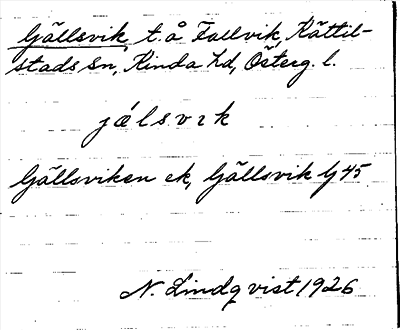 Gällsvik, t. å Fallvik, Kättil-
stads sn, Kinda hd, Österg. l.
jälsvɩk
Gällsviken ek, Gällsvik G 45
N. Lindqvist 1926